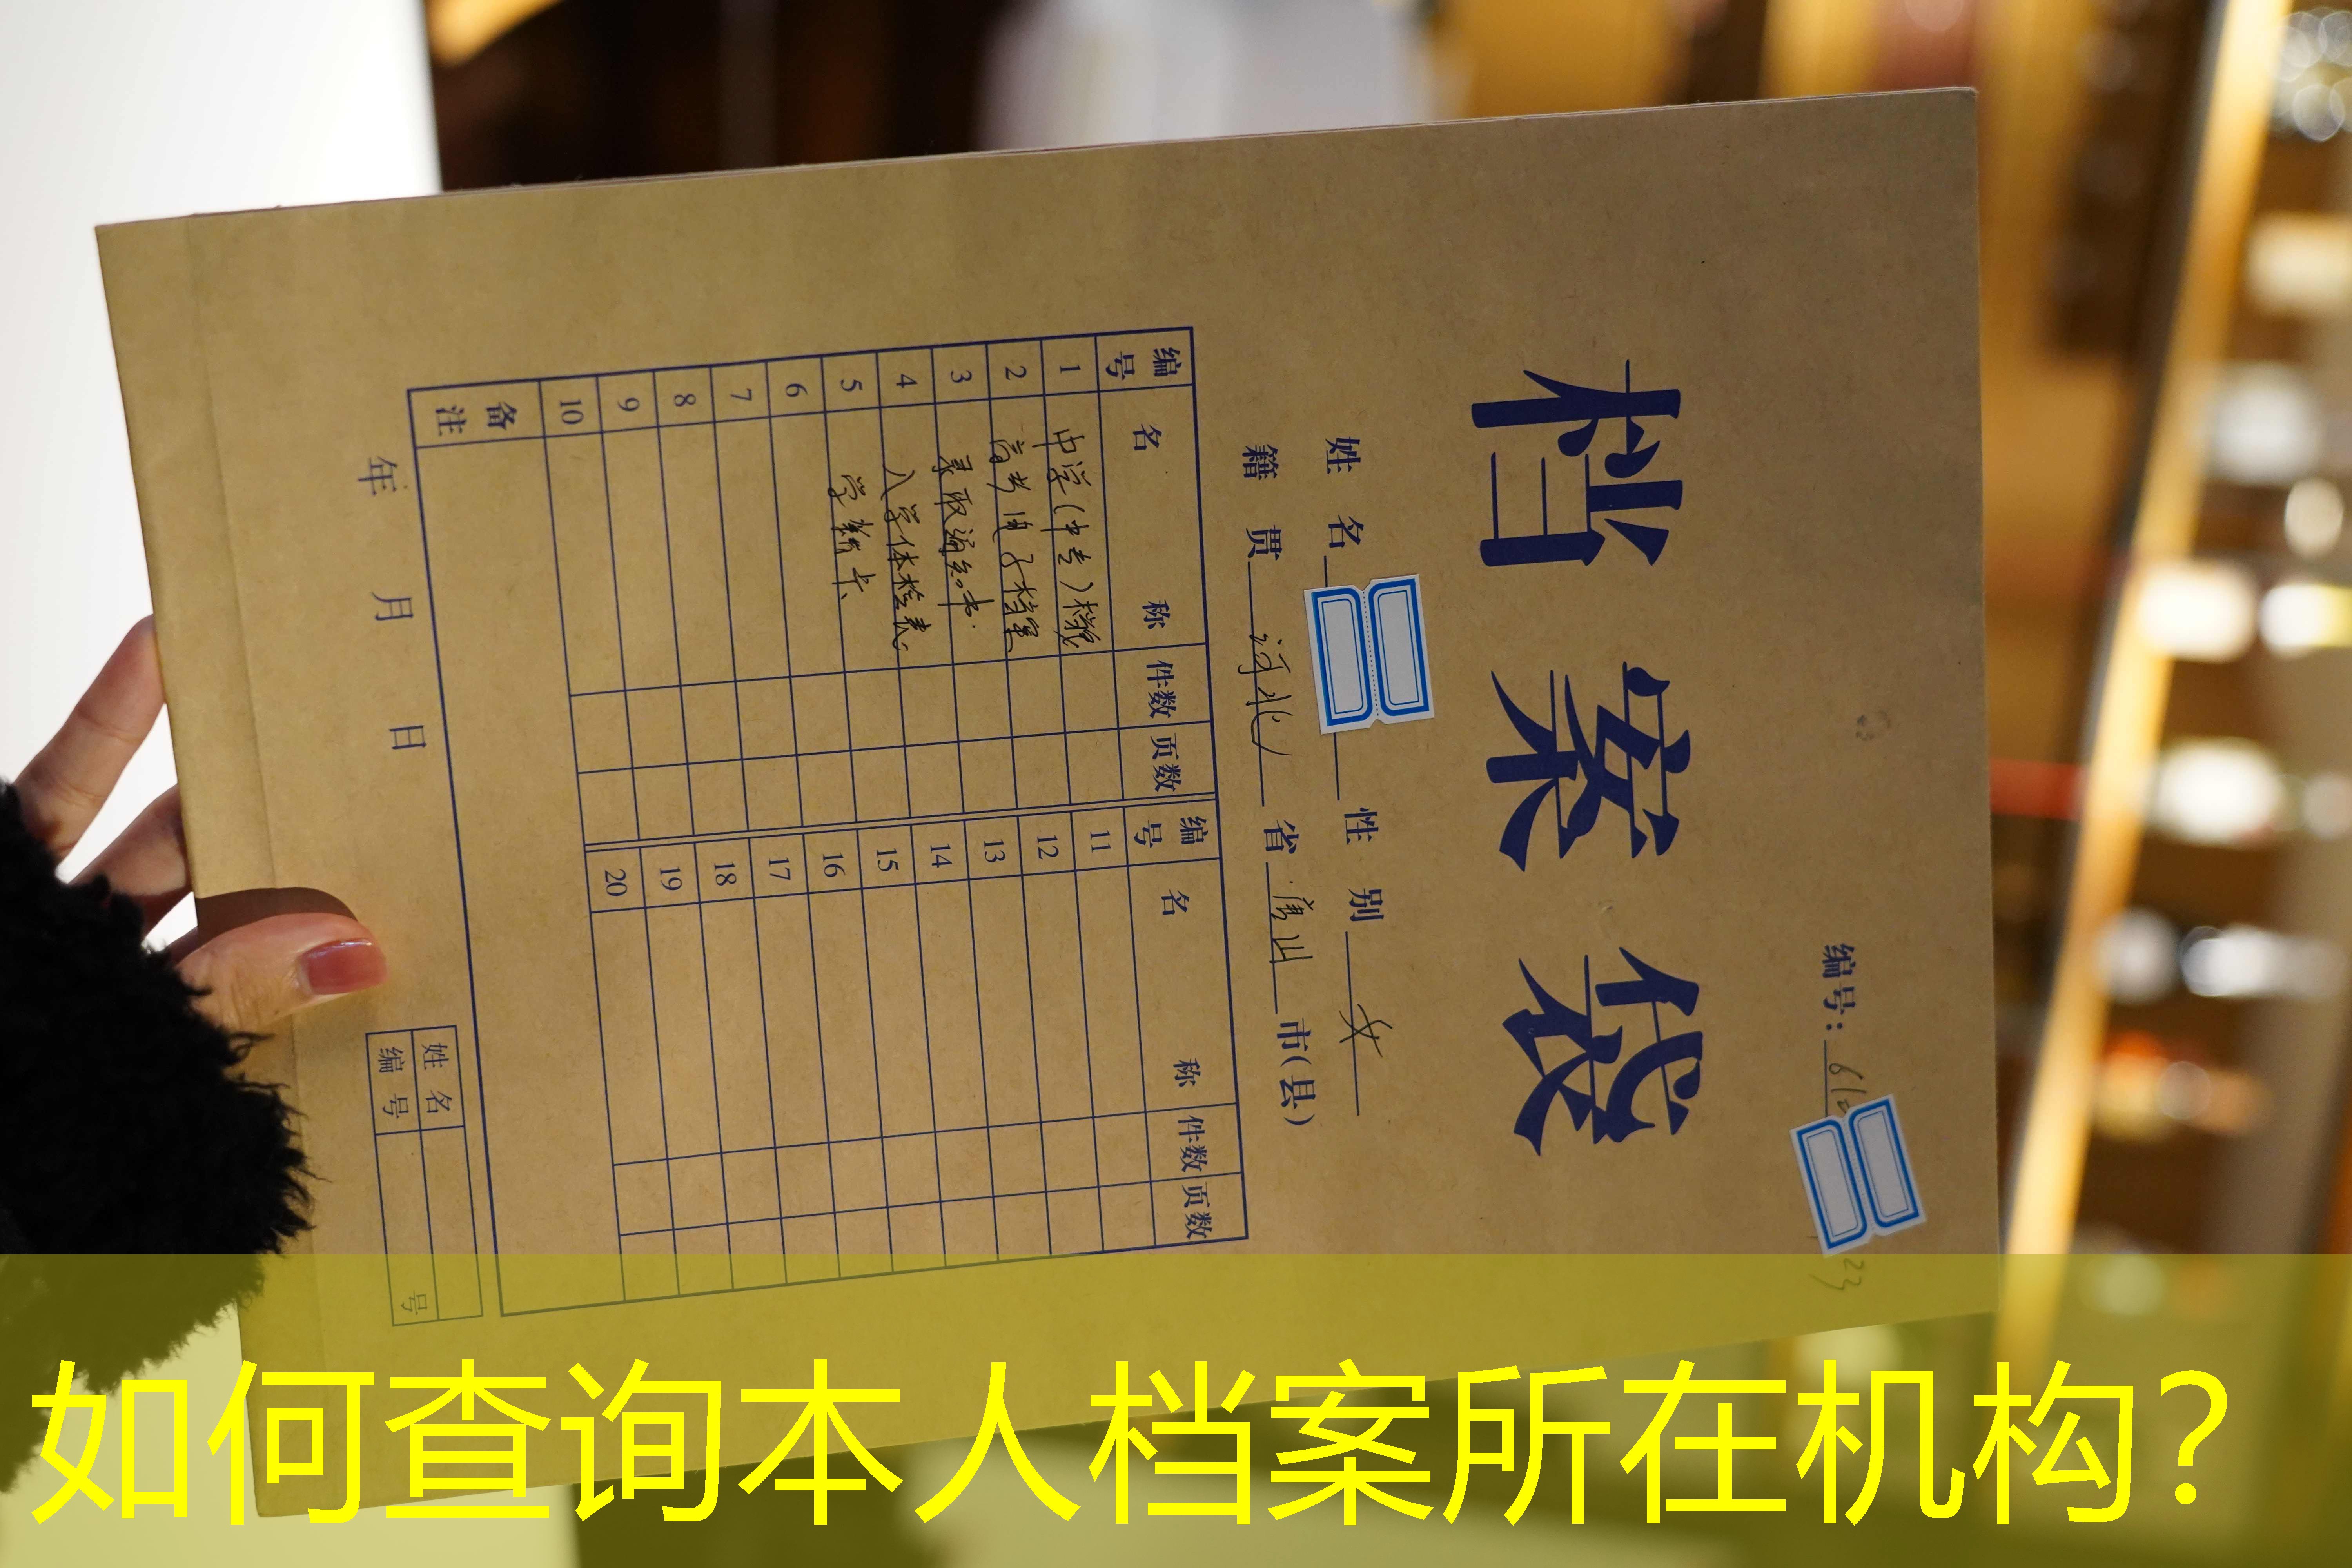 编号：
档案袋
姓名 性别 女
籍贯 河北 省 唐山 市(县)
编号 名称 件数 页数 编号 名称 件数 页数
1 中学(中专)档案 11
2 高考电子档案 12
3 录取通知书 13
4 入学体检表 14
5 学籍卡 15
6 16
7 17
8 18
9 19
10 20
备注
年 月 日
姓名
编号 号
如何查询本人档案所在机构？